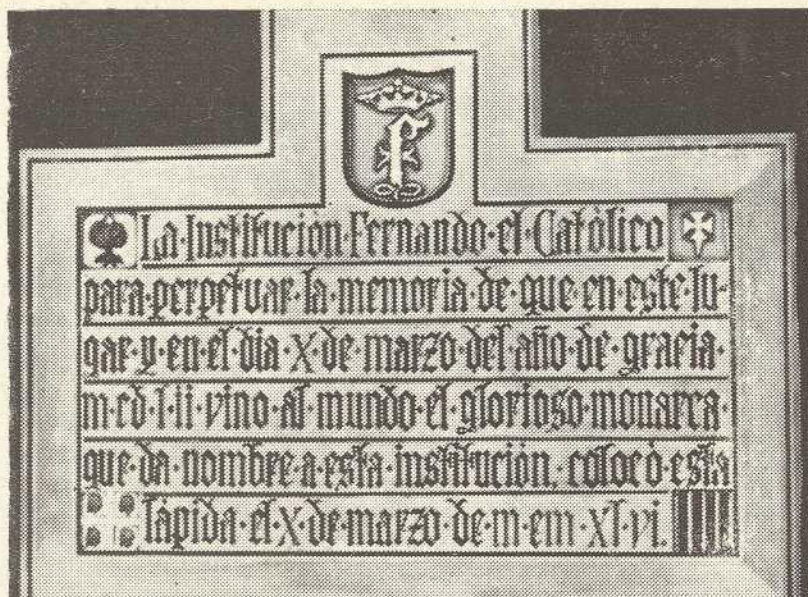 La·Institución·Fernando·el·Católico
para·perpetuar·la·memoria·de·que·en·este·lu-
gar·y·en·el·dia·X·de·marzo·del·año·de·gracia·
m·cd·l·ii·vino·al·mundo·el·glorioso·monarca·
que·da·nombre·a·esta·institución,·colocó·esta
lápida·el·X·de·marzo·de·m·cm·xl·vi.